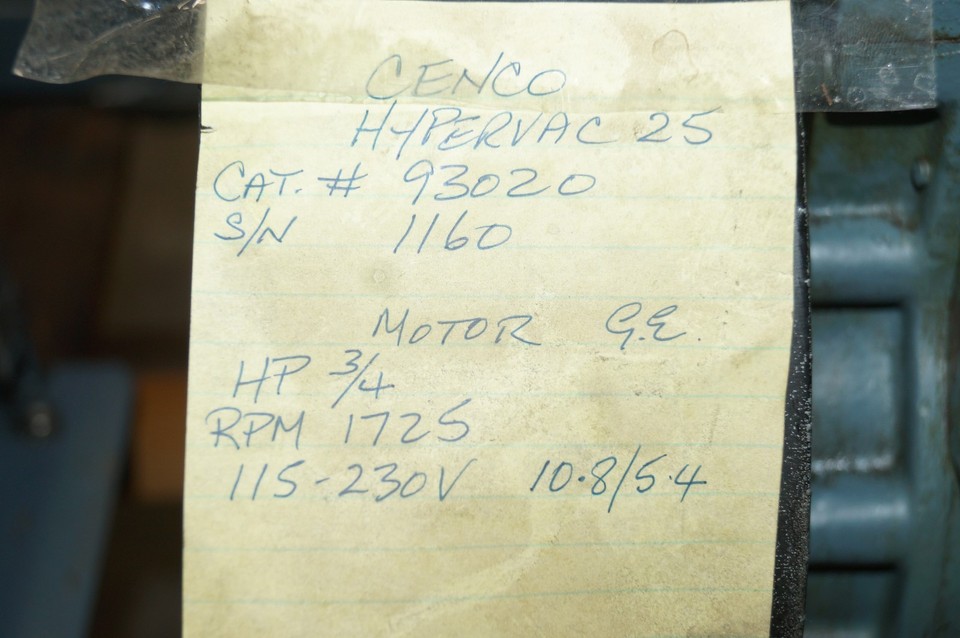 CENCO
HYPERVAC 25
CAT. # 93020
S/N 1160
MOTOR G.E.
HP 3/4
RPM 1725
115-230V 10.8/5.4